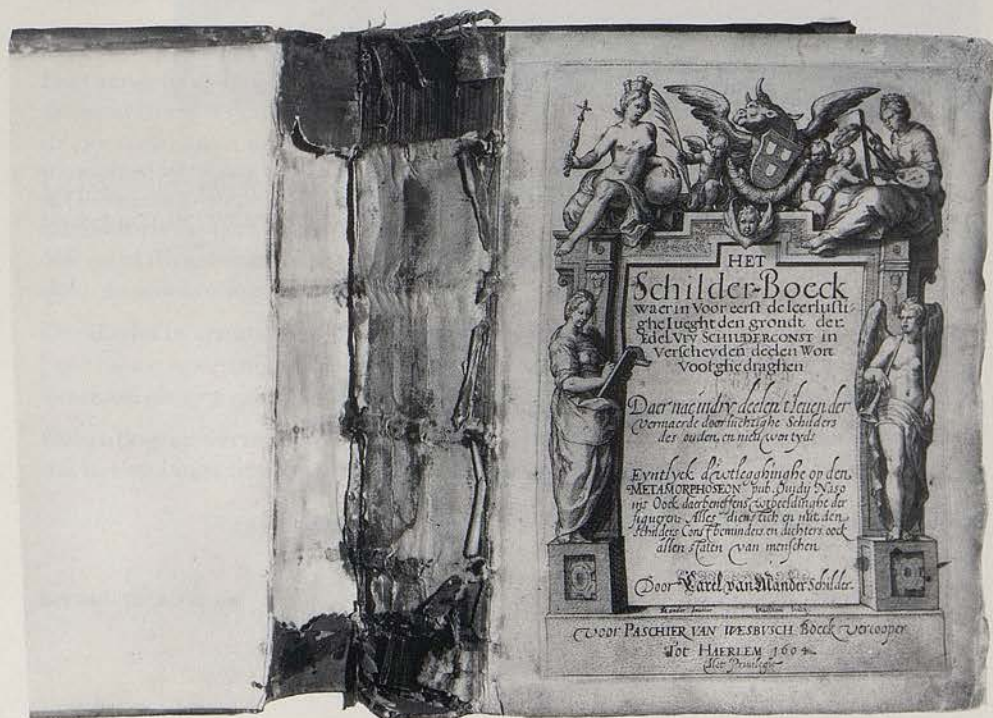 HET
Schilder-Boeck
waer in Voor eerst de leerlusti-
ghe Iueght den grondt der
Edel Vry SCHILDERCONST in
Verscheyden deelen Wort
Voorghedraghen
Daer nae in dry deelen t'leven der
vermaerde doorluchtighe Schilders
des ouden, en nieuwen tyds
Eyntlyck d'wtlegghinghe op den
METAMORPHOSEON pub. Ovidij Naso
nis Oock daerbeneffens wtbeeldinghe der
figueren Alles dienstich en nut den
schilders Constbeminders en dichters, oock
allen staten van menschen
Door Carel van Mander Schilder.
voor PASCHIER VAN WESBVSCH Boeck vercooper
Tot HAERLEM 1604
Met Privilegie